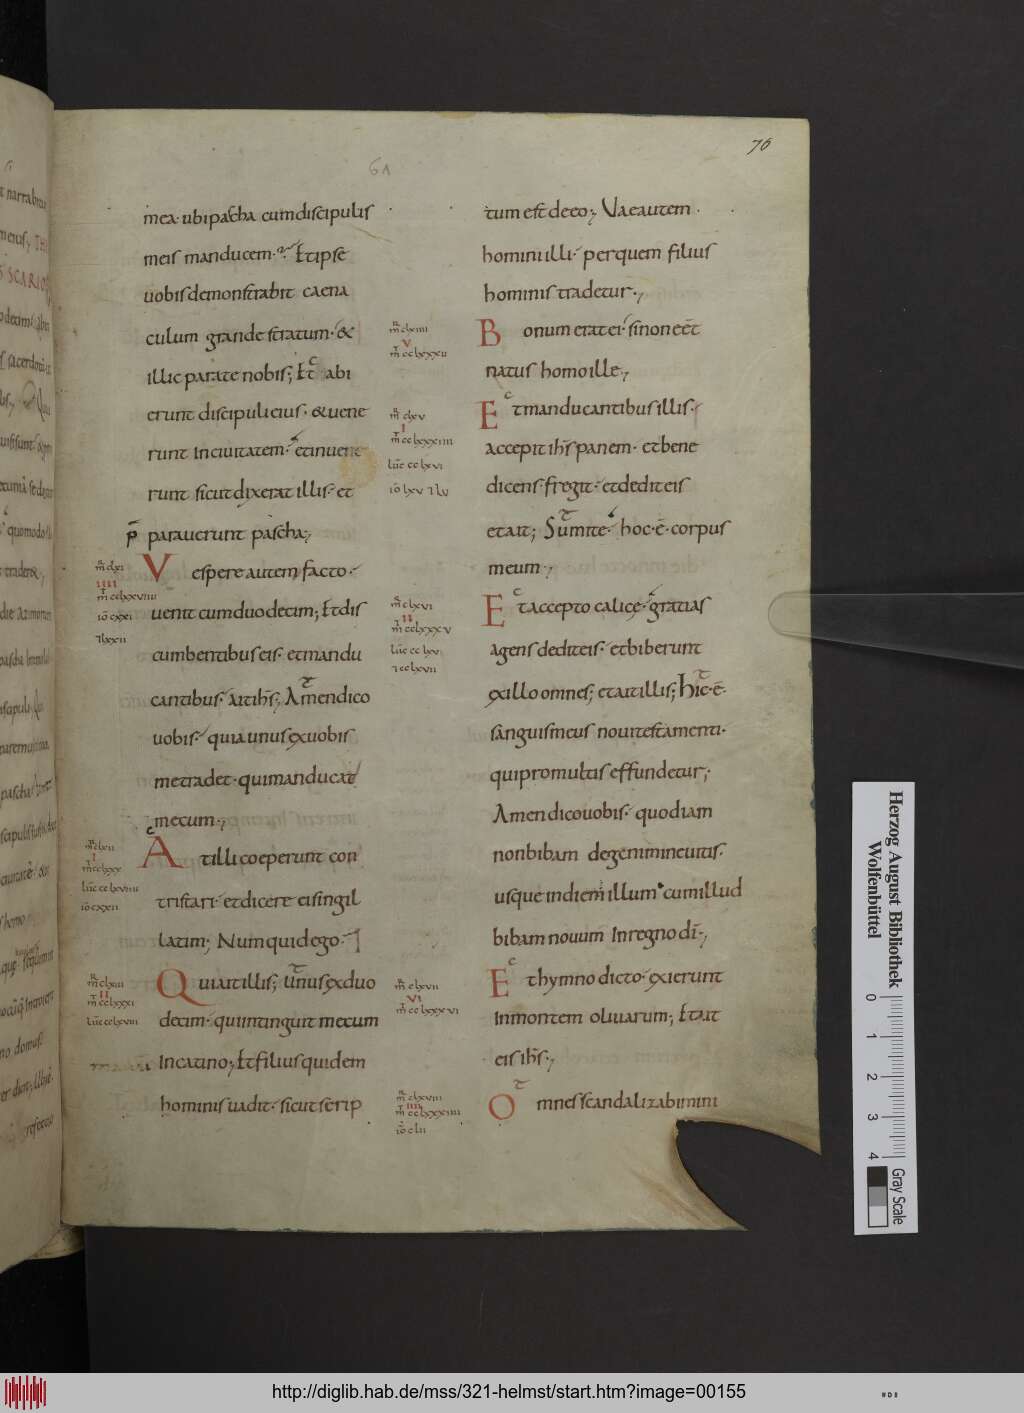 76
61
mea· ubi pascha cum discipulis
meis manducem·? Et ipse
uobis demonstrabit caena
culum grande stratum· &
illic parate nobis; Et abi
erunt discipuli eius· & uene
runt in ciuitatem· et inuene
runt sicut dixerat illis· et
p̄ parauerunt pascha;
Vespere autem facto·
uenit cum duodecim; Et dis
cumbentibus eis· et mandu
cantibus· ait ihs̄; Amen dico
uobis· quia unus ex uobis
me tradet· qui manducat
mecum·;
At illi coeperunt con
tristari· et dicere ei singil
latim; Numquid ego·
Qui ait illis; unus ex duo
decim· qui intinguit mecum
in catino; Et filius quidem
hominis uadit· sicut scrip
m̄ clxiiii
V
m̄ cclxxxii
m̄ clxv
I
m̄ cclxxxiiii
luc̄ cclxvi
io̅ lxv ⁊ lv
m̄ clxi
IIII
m̄ cclxxviiii
io̅ cxxi
⁊ lxxii
m̄ clxvi
II
m̄ cclxxxv
luc̄ cclxvi
⁊ cclxvii
m̄ clxii
I
m̄ cclxxx
luc̄ cclxviiii
io̅ cxxii
m̄ clxiii
II
m̄ cclxxxi
luc̄ cclxviii
m̄ clxvii
VI
m̄ cclxxxvi
m̄ clxviii
IIII
m̄ cclxxxiiii
io̅ clii
tum est de eo; Vae autem
homini illi· per quem filius
hominis tradetur·;
Bonum erat ei· si non eēt
natus homo ille;
Et manducantibus illis·
accepit ihs̄ panem· et bene
dicens· fregit· et dedit eis
et ait; Sumite· hoc· ē· corpus
meum·;
Et accepto calice· gratias
agens dedit eis· et biberunt
ex illo omnes; et ait illis; hic· ē·
sanguis meus noui testamenti·
qui pro multis effundetur;
Amen dico uobis· quod iam
non bibam de genimine uitis·
usque in diem illum· cum illud
bibam nouum in regno dī·;
Et hymno dicto· exierunt
in montem oliuarum; Et ait
eis ihs̄·;
Omnes scandalizabimini
Herzog August Bibliothek
Wolfenbüttel
0 1 2 3 4
Gray Scale
http://diglib.hab.de/mss/321-helmst/start.htm?image=00155